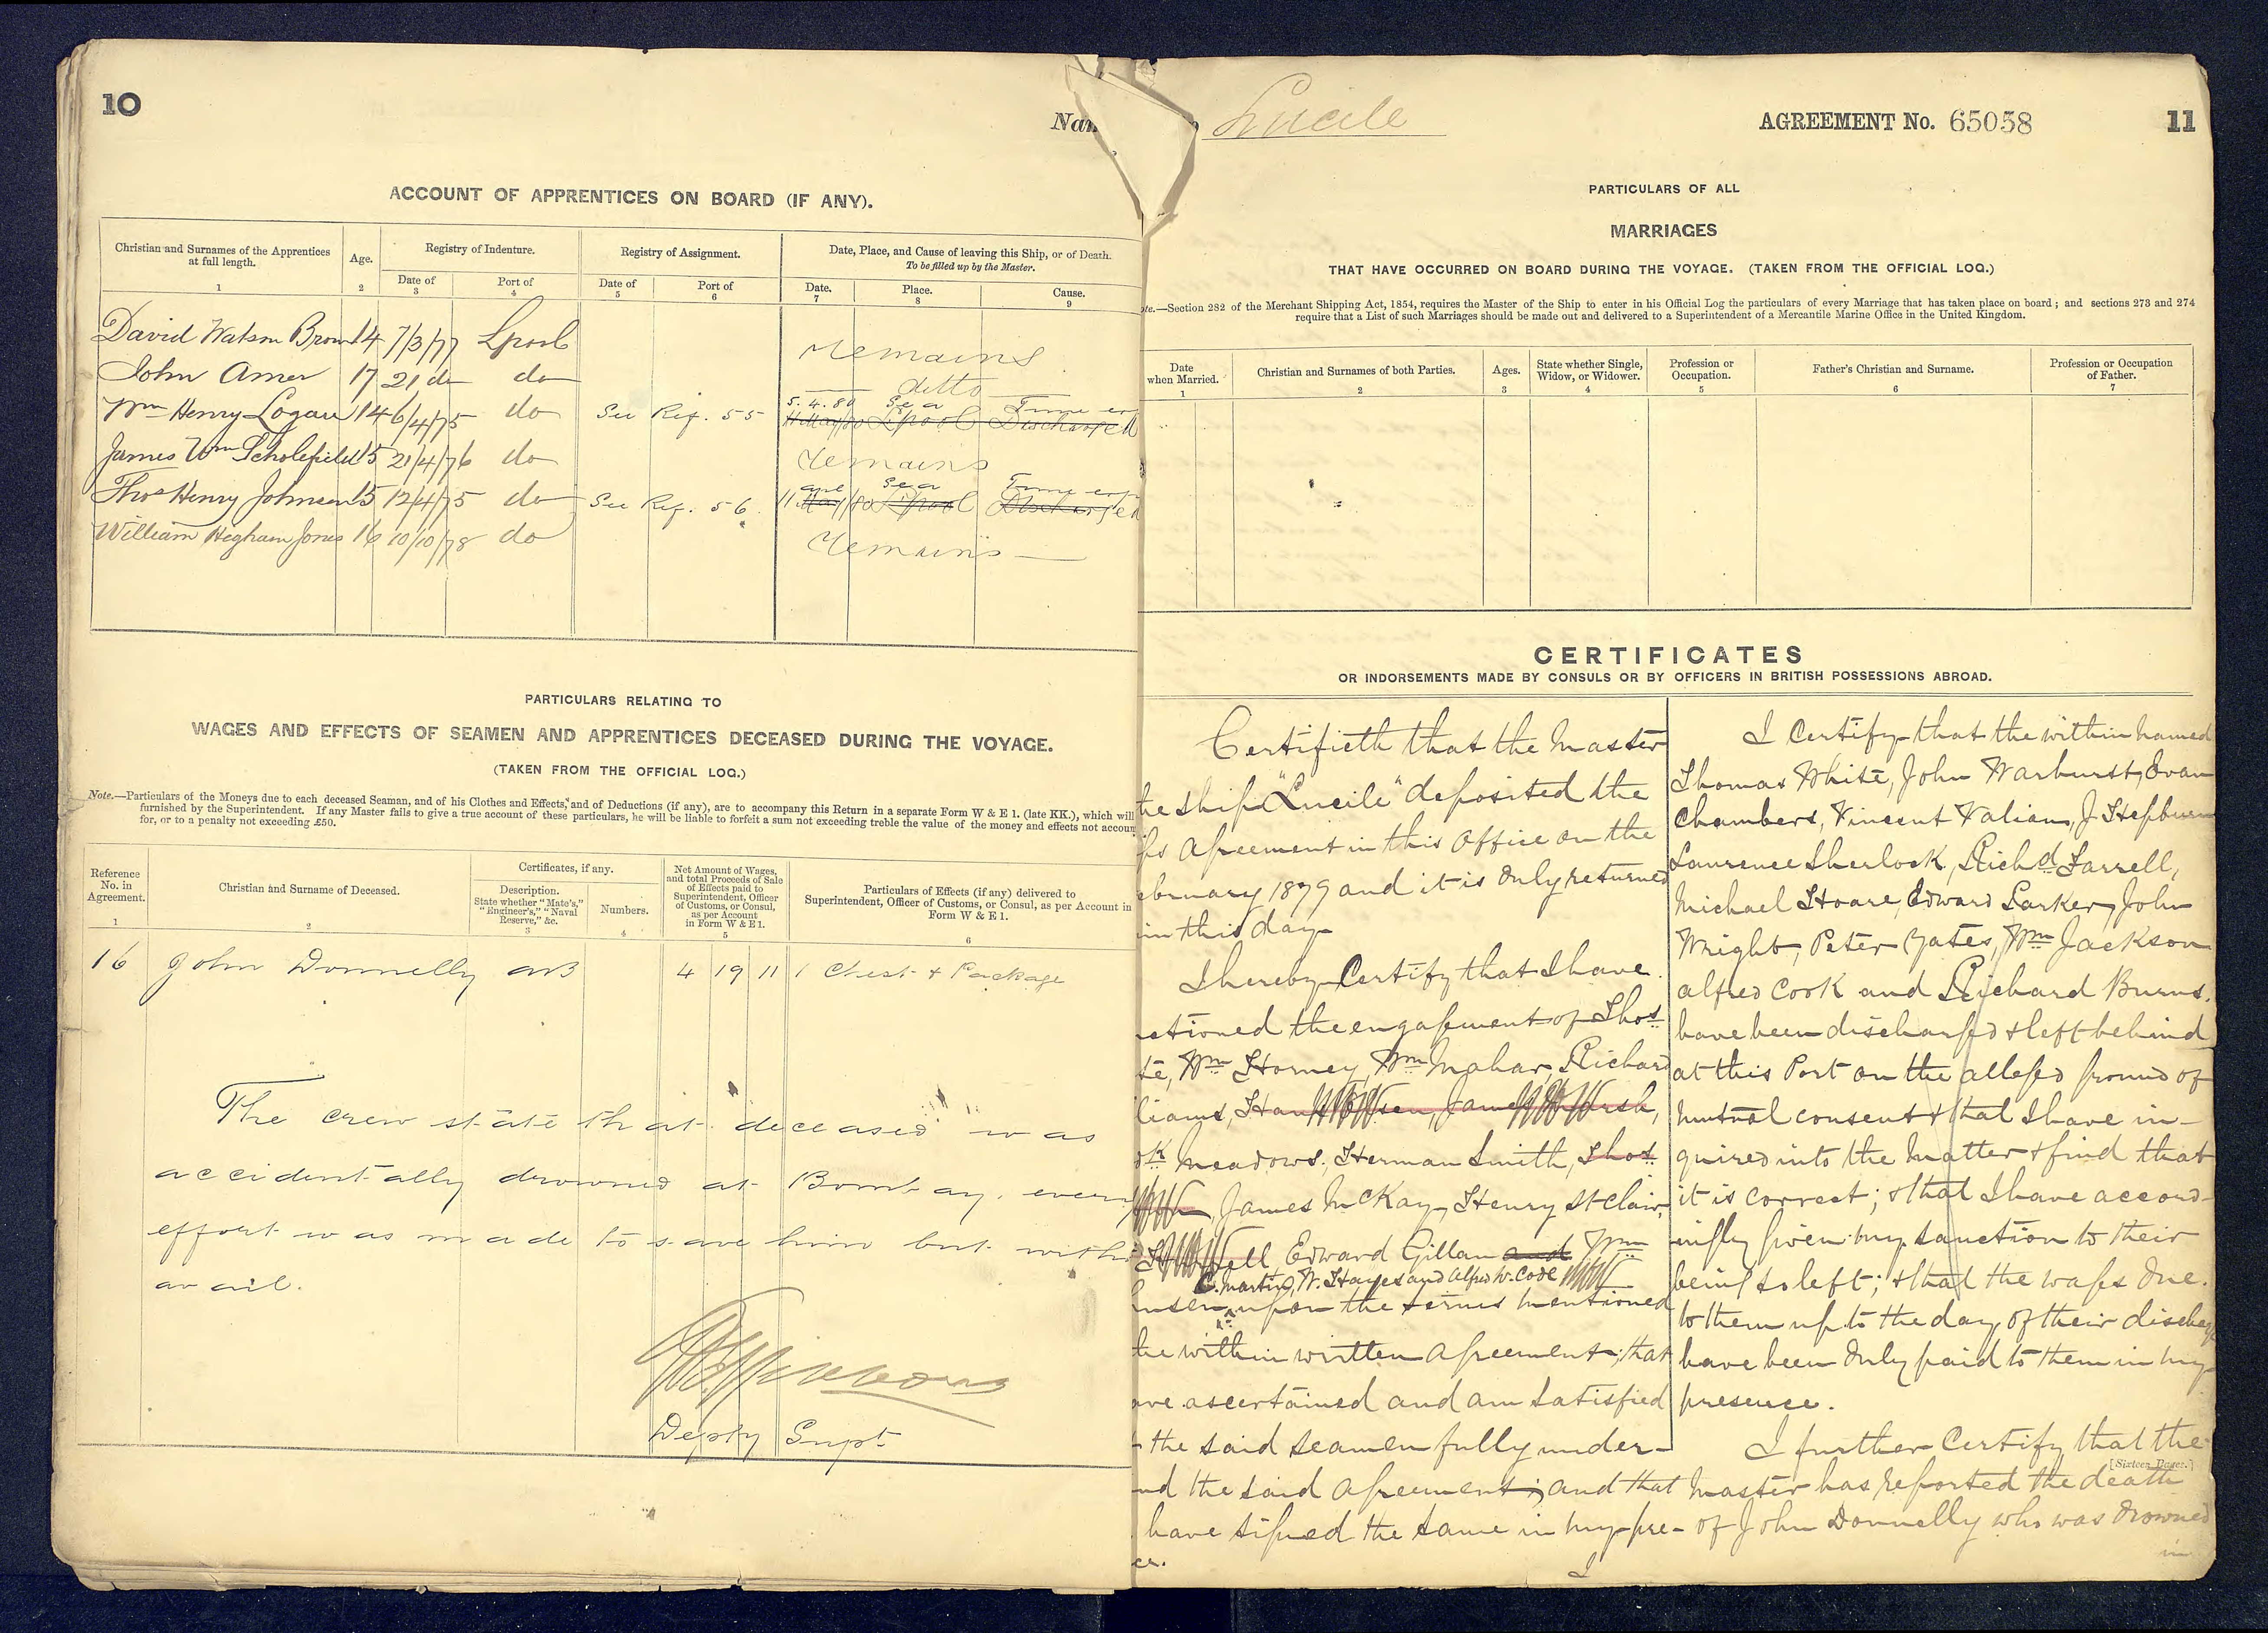 10
Lucile
AGREEMENT No. 65058
11
ACCOUNT OF APPRENTICES ON BOARD (IF ANY).
Christian and Surnames of the Apprentices at full length.
Age.
Registry of Indenture.
Registry of Assignment.
Date, Place, and Cause of leaving this Ship, or of Death.
To be filled up by the Master.
Date of
Port of
Date of
Port of
Date.
Place.
Cause.
1 2 3 4 5 6 7 8 9
David Watson Brown 14 7/3/77 Lpool remains
John Amer 17 21 do do ditto
5.4.80 Sea Time
Wm Henry Logan 14 6/4/75 do See Rig. 55 11 May/80 L'pool Discharged
James Wm Scholefield 15 21/4/76 do remains
Sea Time
Thos Henry Johnson 15 12/4/75 do See Rig. 56. 11 May/80 L'pool Discharged
William Higham Jones 16 10/10/78 do remains
PARTICULARS RELATING TO
WAGES AND EFFECTS OF SEAMEN AND APPRENTICES DECEASED DURING THE VOYAGE.
(TAKEN FROM THE OFFICIAL LOG.)
Note.—Particulars of the Moneys due to each deceased Seaman, and of his Clothes and Effects, and of Deductions (if any), are to accompany this Return in a separate Form W & E 1. (late KK.), which will
furnished by the Superintendent. If any Master fails to give a true account of these particulars, he will be liable to forfeit a sum not exceeding treble the value of the money and effects not accoun
for, or to a penalty not exceeding £50.
Reference No. in Agreement.
Christian and Surname of Deceased.
Certificates, if any.
Description. State whether "Mate's," "Engineer's," "Naval Reserve," &c.
Numbers.
Net Amount of Wages, and total Proceeds of Sale of Effects paid to Superintendent, Officer of Customs, or Consul, as per Account in Form W & E 1.
Particulars of Effects (if any) delivered to Superintendent, Officer of Customs, or Consul, as per Account in Form W & E 1.
1 2 3 4 5 6
16 John Donnelly AB 4 19 11 1 Chest + Package
The crew state that deceased was
accidentally drowned at Bombay. every
effort was made to save him but with
avail.
Depty Supt
PARTICULARS OF ALL
MARRIAGES
THAT HAVE OCCURRED ON BOARD DURING THE VOYAGE. (TAKEN FROM THE OFFICIAL LOG.)
ote.—Section 282 of the Merchant Shipping Act, 1854, requires the Master of the Ship to enter in his Official Log the particulars of every Marriage that has taken place on board; and sections 273 and 274
require that a List of such Marriages should be made out and delivered to a Superintendent of a Mercantile Marine Office in the United Kingdom.
Date when Married.
Christian and Surnames of both Parties.
Ages.
State whether Single, Widow, or Widower.
Profession or Occupation.
Father's Christian and Surname.
Profession or Occupation of Father.
1 2 3 4 5 6 7
CERTIFICATES
OR INDORSEMENTS MADE BY CONSULS OR BY OFFICERS IN BRITISH POSSESSIONS ABROAD.
Certifieth that the Master
he ship "Lucile" deposited the
ps Agreement in this Office on the
ebruary 1879 and it is duly returned
im this day
I hereby Certify that I have
ctioned the engagement of Thos
te, Wm Horney, Wm Mahar, Richard
liams,
Meadows, Herman Smith, Thos
James McKay, Henry St Clair,
Edward Gillan and Wm
C. Martin, W. Hayes and Alfred W. Code
nsen upon the terms mentioned
he within written Agreement; that
ave ascertained and am satisfied
the said seamen fully under-
nd the said Agreement; and that
have signed the same in my pre-
ce.
I
I Certify that the within named
Thomas White, John Warhurst, Evan
Chambers, Vincent Valian, J Hepburn
Lawrence Sherlock, Richd Farrell,
Michael Hoare, Edward Larker, John
Wright, Peter Yates, Wm Jackson
Alfred Cook and Richard Burns.
have been discharged & left behind
at this Port on the alleged ground of
mutual consent & that I have in-
quired into the matter & find that
it is correct; & that I have accord-
ingly given my sanction to their
being so left; & that the wages due
to them up to the day of their discharge
have been duly paid to them in my
presence.
I further Certify that the
[Sixteen Pages.]
Master has reported the death
of John Donnelly who was drowned
in